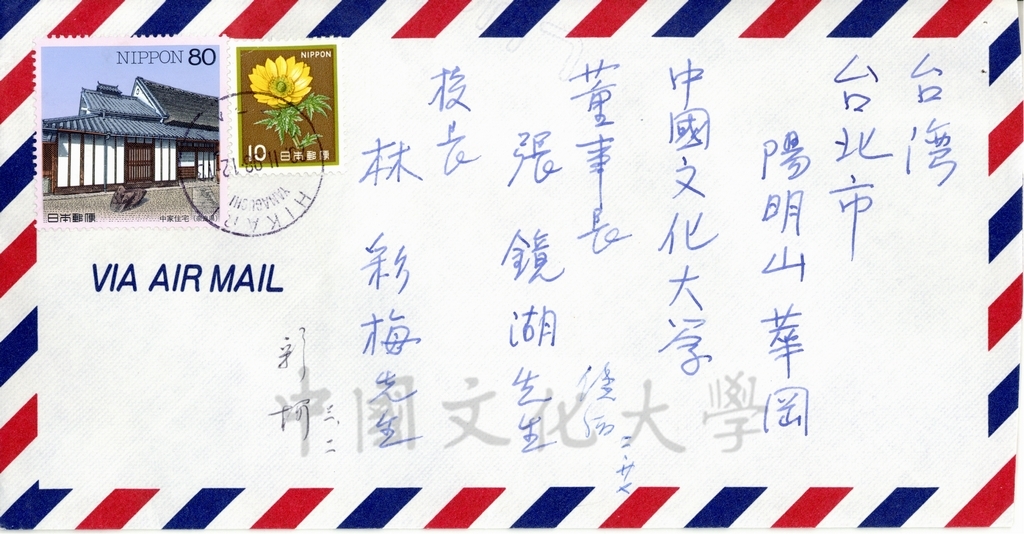 台湾
台北市
陽明山華岡
中國文化大学
董事長
張鏡湖先生
校長
林彩梅先生
彩梅
三、二
NIPPON 80
日本郵便
中家住宅
NIPPON
10 日本郵便
HIKARI
YAMAGUCHI
VIA AIR MAIL
中國文化大學